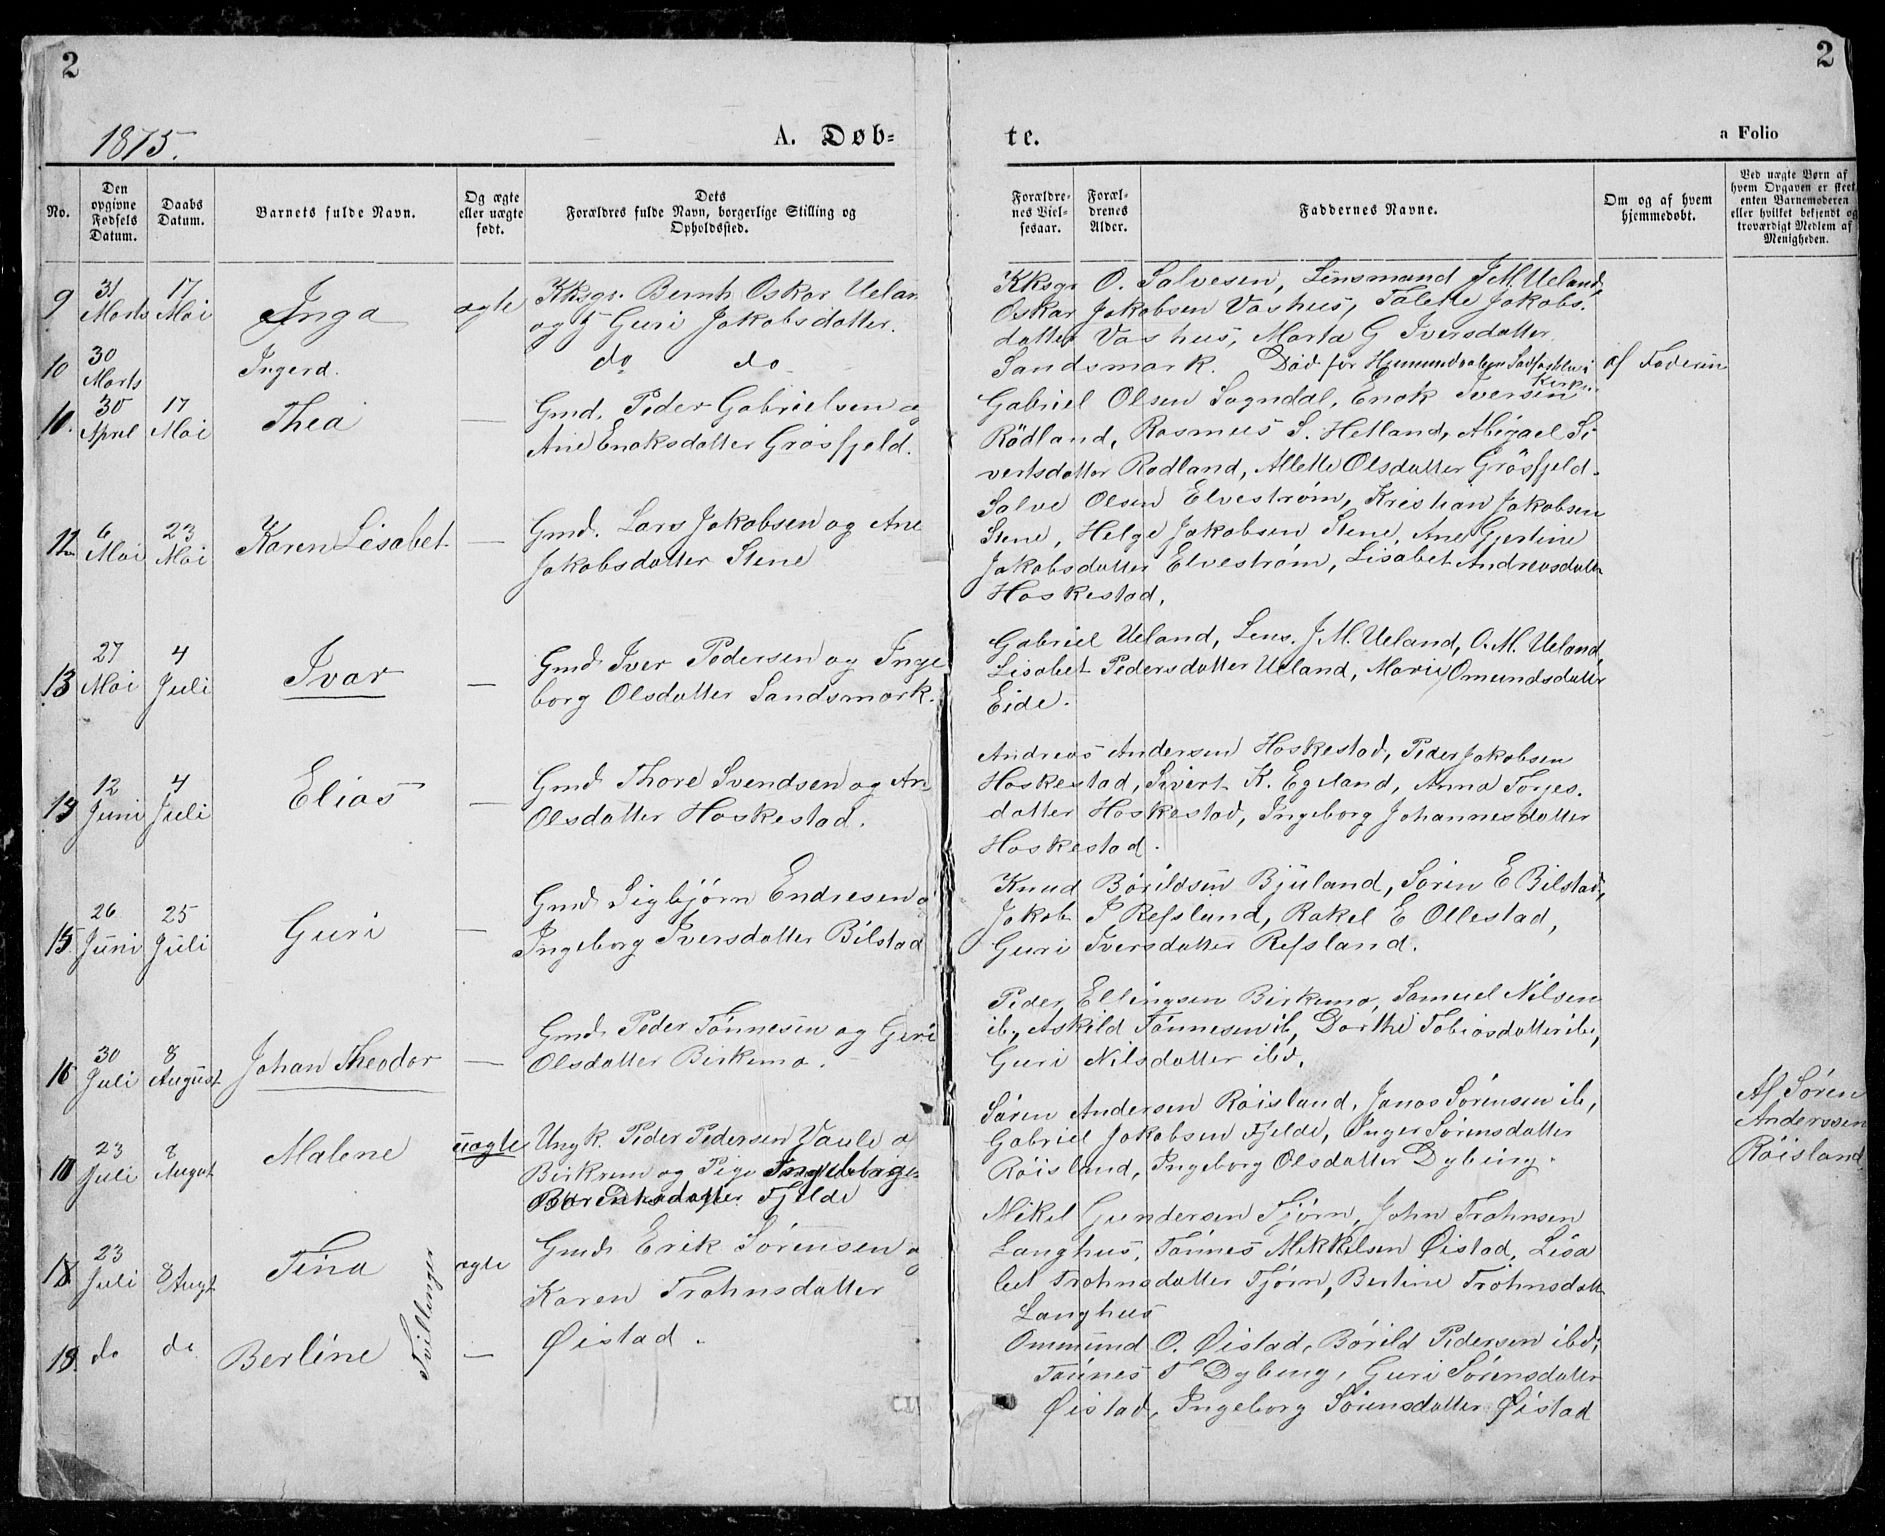 2
1875.
A. Døb-
No.
Den opgivne Fødsels Datum.
Daabs Datum.
Barnets fulde Navn.
Og ægte eller uægte født.
Dets Forældres fulde Navn, borgerlige Stilling og Opholdssted.
9 31 Marts 17 Mai Inga ægte Kksgr. Bernh. Oskar Uelan
og Guri Jakobsdatter.
10 30 Marts Ingerd. do do
10. 30 April 17 Mai Thea — Gmd. Peder Gabrielsen o
Ane Enoksdatter Grøsfjeld.
12 6 Mai 23 Mai Karen Lisabet — Gmd. Lars Jakobsen og Ane
Jakobsdatter Stene
13 27 Mai 4 Juli Ivar — Gmd. Iver Pedersen og Inge
borg Olsdatter Sandsmark.
14 12 Juni 4 Juli Elias — Gmd. Thore Svendsen og An
Olsdatter Haskestad.
15 26 Juni 25 Juli Guri — Gmd. Sigbjørn Endresen o
Ingeborg Iversdatter Bilstad
16 30 Juli 8 August Johan Theodor — Gmd. Peder Tønnesen og Geri
Olsdatter Birkemo.
23 Juli 8 August Malene uægte Ungk. Peder Pedersen Vaule o
Birkrem og Pige Ingeborg
Fjelde
18 23 Juli 8 Augt Tina ægte Gmd. Erik Sørensen o
Karen Trohnsdatter
Tvillinger
19. do do Berline — Øistad.
2
te.
a Folio
Forældrenes Vielsesaar.
Forældrenes Alder.
Faddernes Navne.
Om og af hvem hjemmedøbt.
Ved uægte Børn af hvem Opgaven er skeet, enten Barnemoderen eller hvilket bekjendt og troværdigt Medlem af Menigheden.
Kksgr O. Salvesen, Lensmand J. M. Ueland,
Oskar Jakobsen Vashus, Talette Jakobs.
datter Vashus, Marta G Iversdatter
Sandsmark. Død før af Faderen
Kirken
Gabriel Olsen Sogndal, Enok Iversen
Rødland, Rasmus S. Hetland, Abigael Si
vertsdatter Rødland, Allette Olsdatter Grøsfjeld.
Salve Olsen Elvestrøm, Kristian Jakobsen
Stene, Helge Jakobsen Stene, Ane Gjertine
Jakobsdatter Elvestrøm, Lisabet Andreasdatter
Haskestad,
Gabriel Ueland, Lens. J. M. Ueland, O. M. Ueland,
Lisabet Pedersdatter Ueland, Marie Omundsdatter
Eide.
Andreas Andersen Haskestad, Peder Jakobsen
Haskestad, Sivert K. Egeland, Anna Torjes.
datter Haskestad, Ingeborg Johannesdatter
Haskestad.
Knud Børildsen Bjuland, Søren E Bilstad,
Jakob P Refsland, Rakel E Ollestad,
Guri Iversdatter Refsland.
Peder Ellingsen Birkemo, Samuel Nilsen
ib, Askild Tønnesen ib, Dorthe Tobiasdatter ib,
Guri Nilsdatter ibd,
Søren Andersen Røisland, Janas Sørensen ib,
Gabriel Jakobsen Fjelde, Inger Sørensdatter
Røisland, Ingeborg Olsdatter Dybing.
Af Søren
Anderssen
Røisland
Mikel Gundersen Tjørn, John Trohnsen
Langhus, Tønnes Mikkelsen Øistad, Lisa
bet Trohnsdatter Tjørn, Bertine Trohnsdatt
Langhus
Ommund O. Øistad, Børild Pedersen ibd,
Tønnes T Dybing, Guri Sørensdatter
Øistad, Ingeborg Sørensdatter Øistad